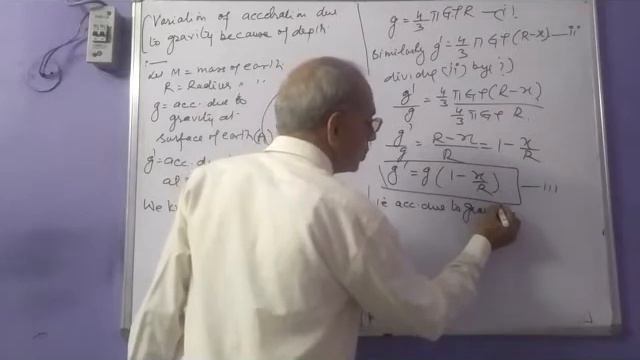 Variation of acceleration due
to gravity because of depth
Let M = mass of earth
R = Radius " "
g = acc. due to
gravity at
surface of earth (A)
g' = acc. d
at
We k
g = 4/3 πGρR — (i)
Similarly g' = 4/3 πGρ(R-x) — ii
dividing (ii) by (i)
g'/g = 4/3 πGρ(R-x) / 4/3 πGρ R
g'/g = R-x/R = 1 - x/R
g' = g(1 - x/R) — iii
i.e acc. due to grav